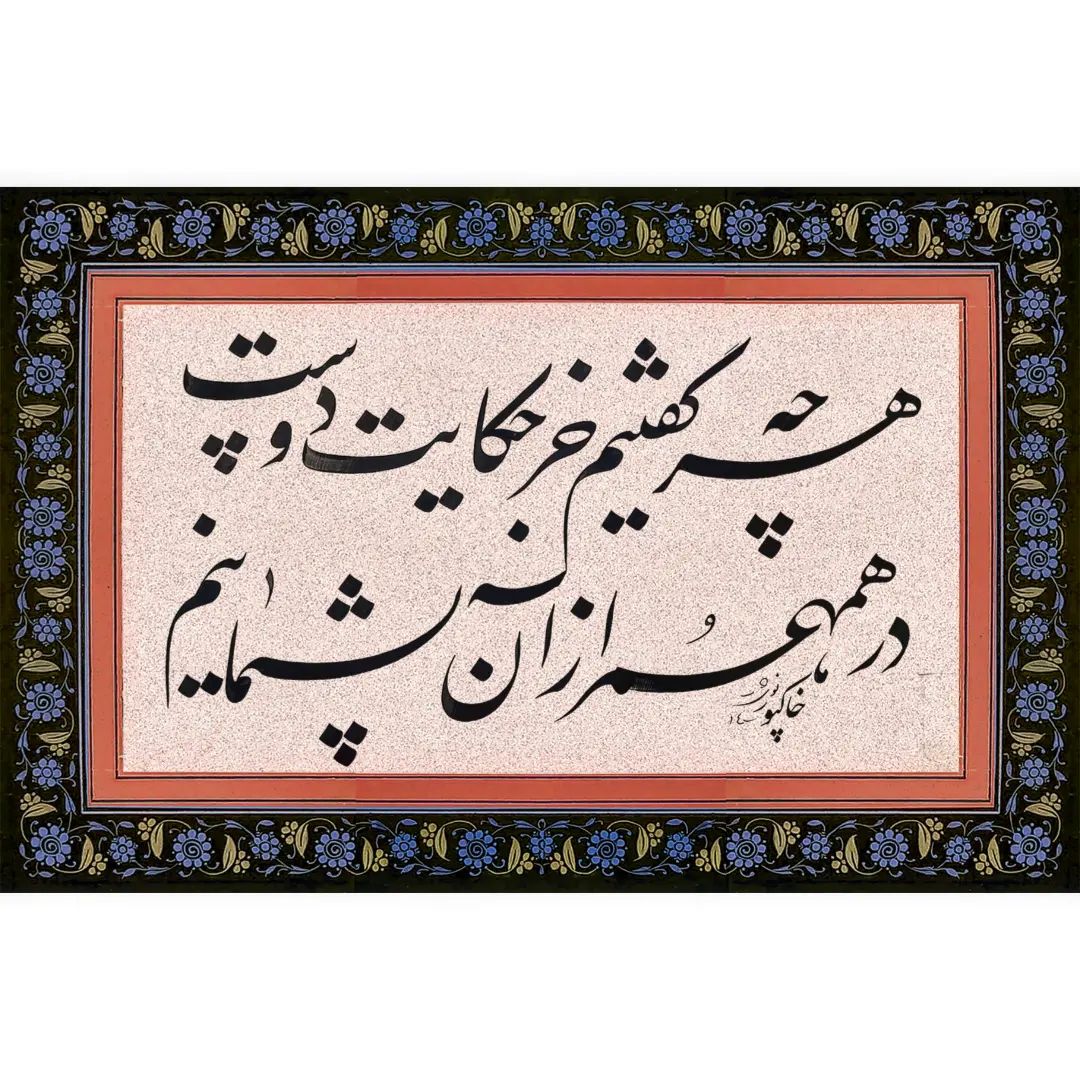 هر چه گفتیم جز حکایت دوست
در همه عمر از آن پشیمانیم
خاکپور